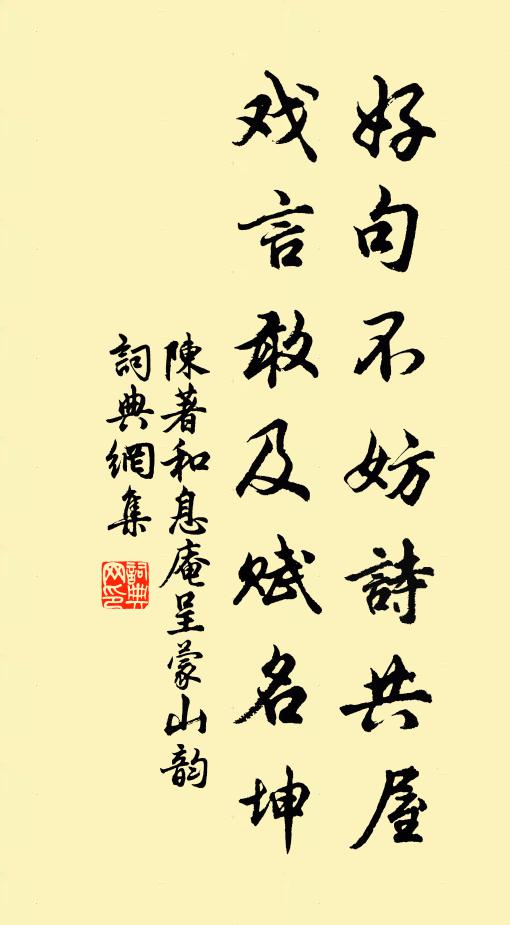 好句不妨詩共屋
戏言敢及赋名坤
陳著和息庵呈蒙山韵
詞典網集
詞典网印